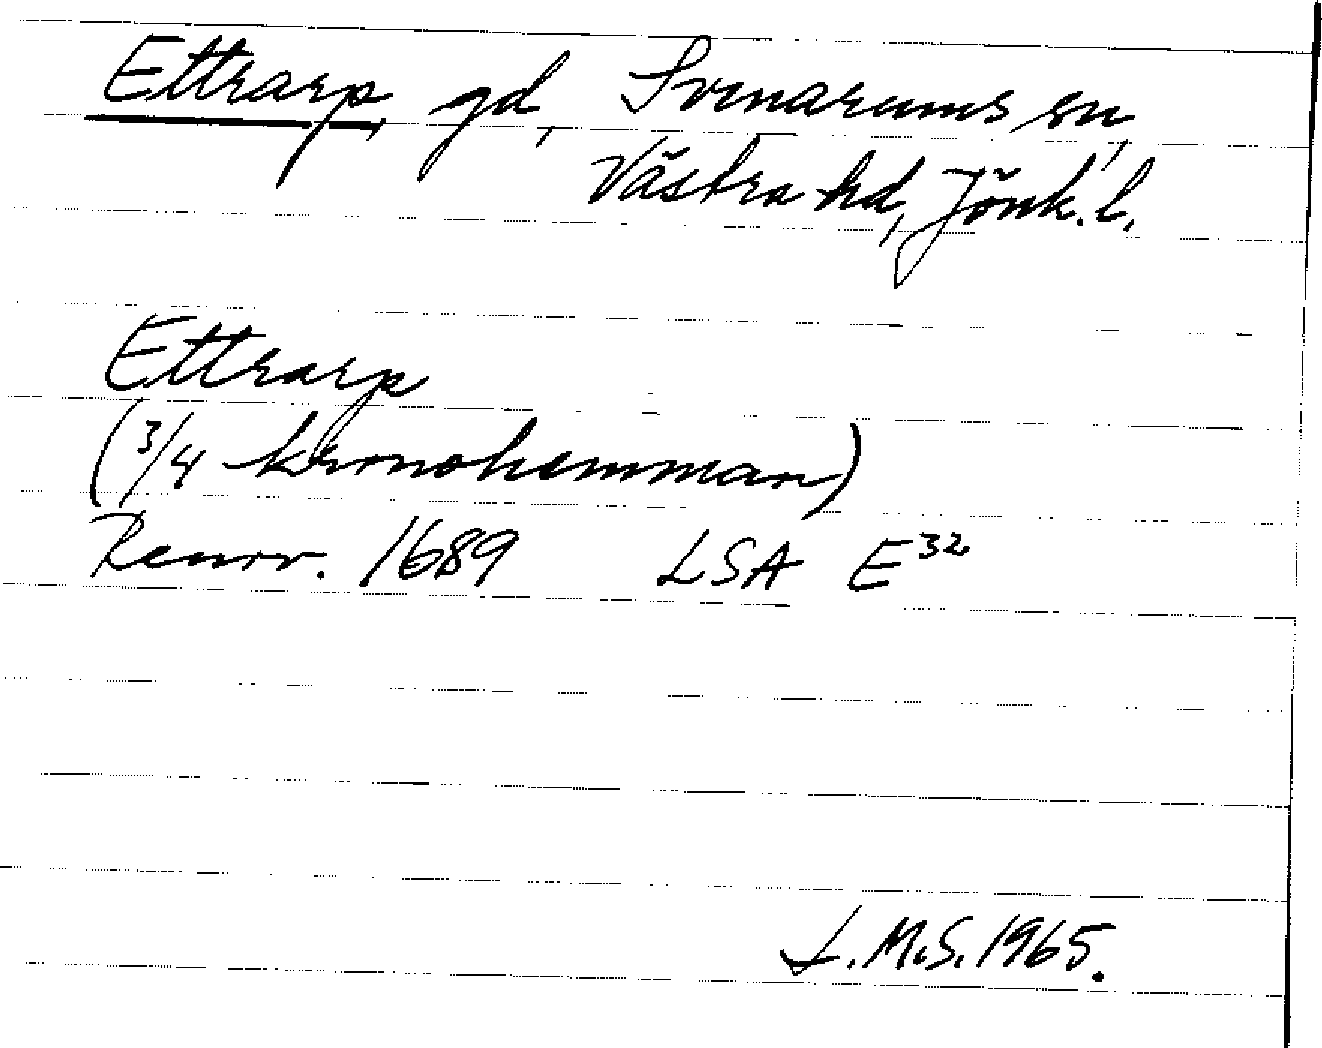 Ettrarp, gd, Svenarums sn,
Västra hd, Jönk. l.
Ettrarp
(3/4 kronohemman)
Renov. 1689 LSA E32
L.M.S. 1965.